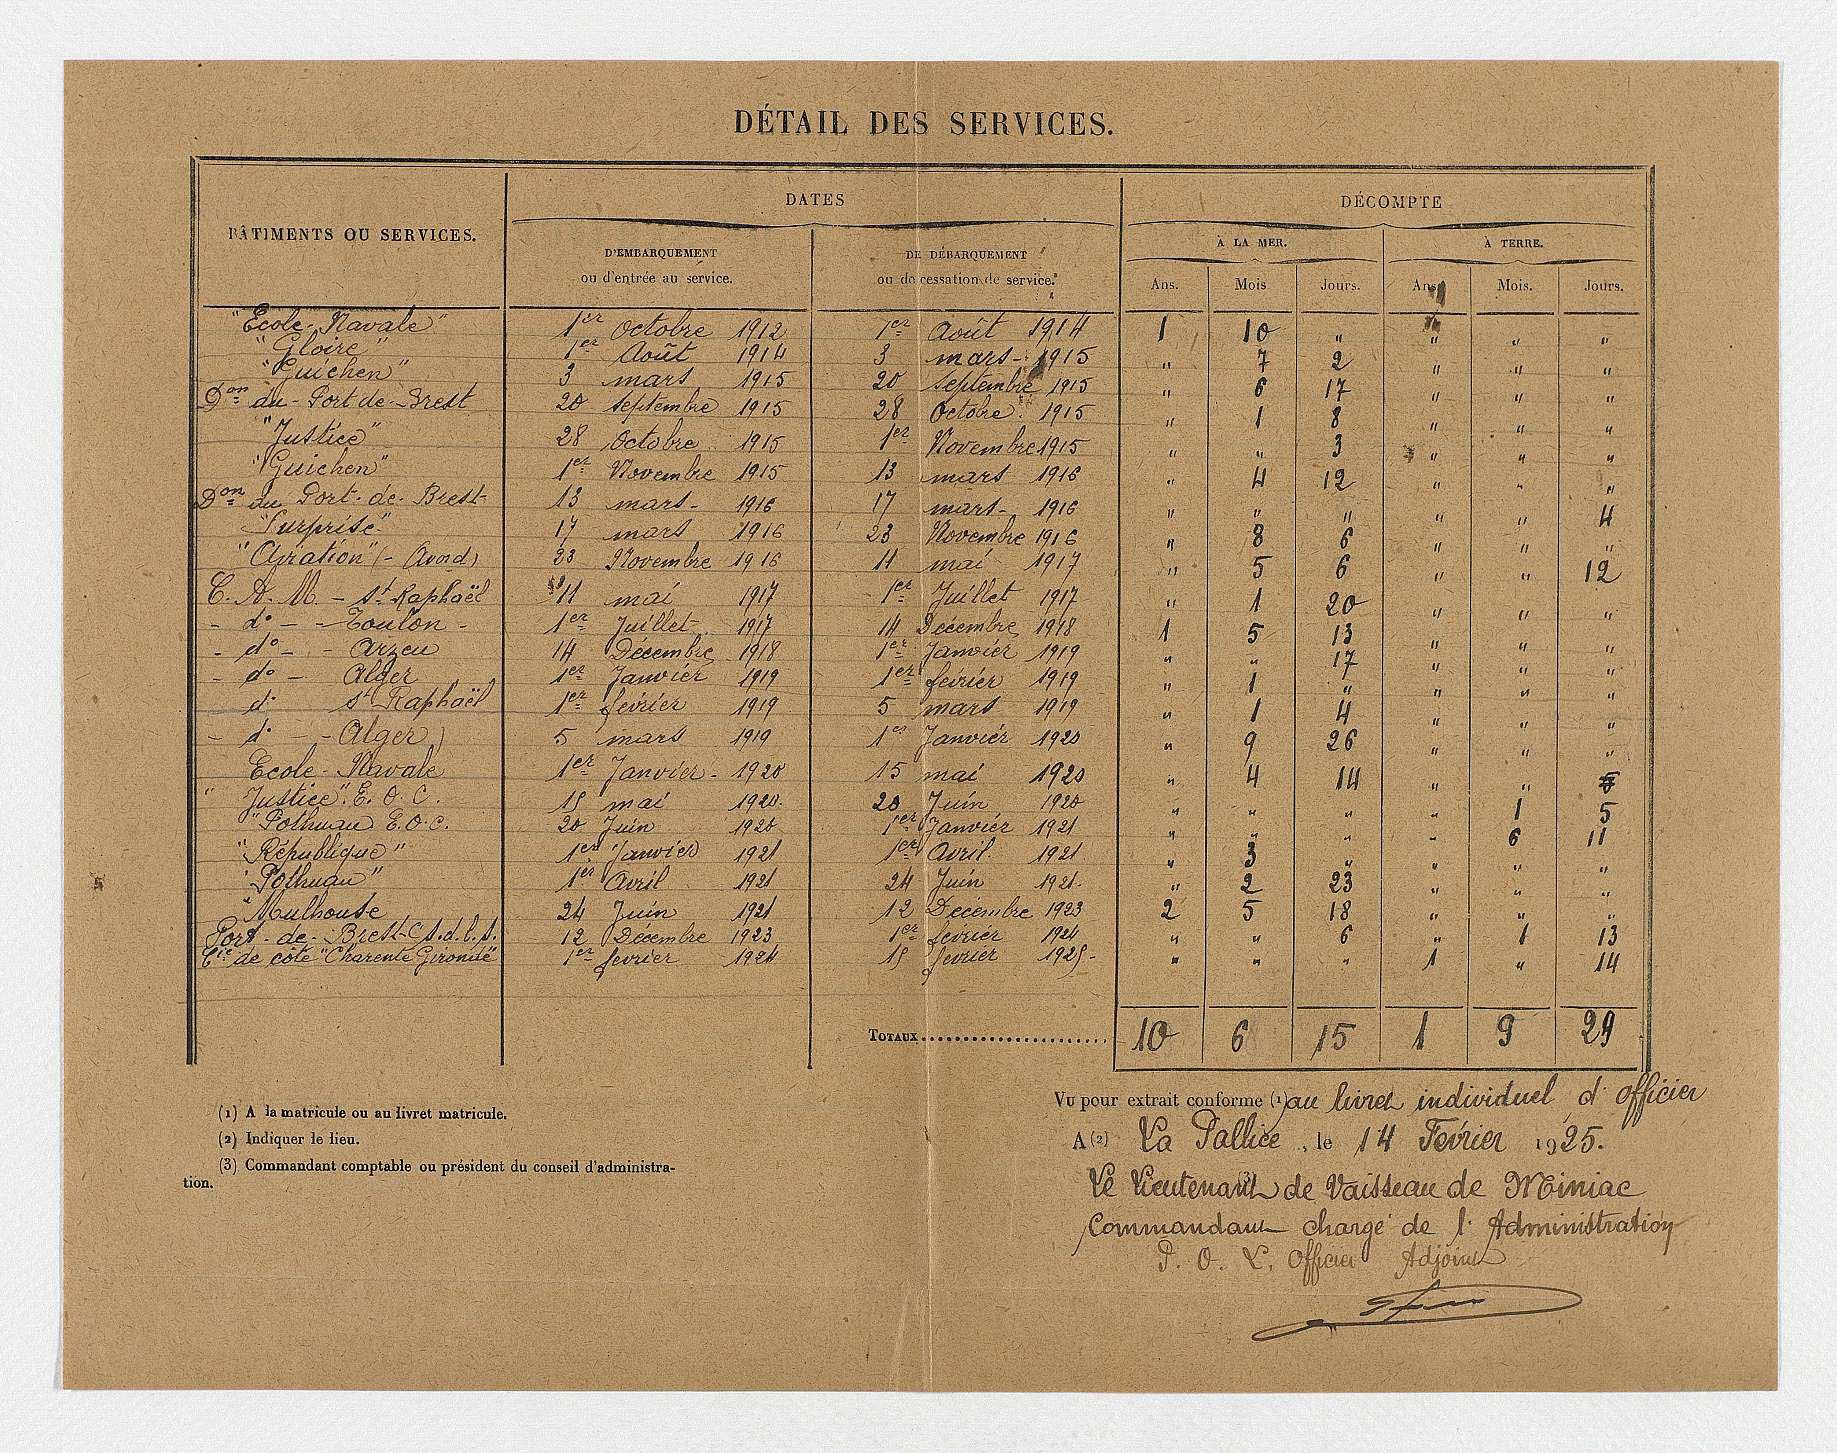 DÉTAIL DES SERVICES.
BÂTIMENTS OU SERVICES. DATES DÉCOMPTE
D'EMBARQUEMENT ou d'entrée au service. DE DÉBARQUEMENT ou de cessation de service. À LA MER. À TERRE.
Ans. Mois Jours. Ans. Mois. Jours.
"Ecole-Navale" 1er Octobre 1912 1er Août 1914 1 10 " " " "
"Gloire" 1er Août 1914 3 mars 1915 " 7 2 " " "
"Guichen" 3 mars 1915 20 septembre 1915 " 6 17 " " "
Don du-Port de-Brest 20 septembre 1915 28 Octobre 1915 " 1 8 " " "
"Justice" 28 Octobre 1915 1er Novembre 1915 " " 3 " " "
"Guichen" 1er Novembre 1915 13 mars 1916 " 4 12 " " "
Don du Port-de-Brest 13 mars 1916 17 mars 1916 " " " " " 4
"Surprise" 17 mars 1916 23 Novembre 1916 " 8 6 " " "
"Aviation" (-Avord) 23 Novembre 1916 11 mai 1917 " 5 6 " " 12
C. A. M. - St Raphaël 11 mai 1917 1er Juillet 1917 " 1 20 " " "
- do - - Toulon - 1er Juillet 1917 14 Décembre 1918 1 5 13 " " "
- do - - Arzeu 14 Décembre 1918 1er Janvier 1919 " " 17 " " "
- do - Alger 1er Janvier 1919 1er février 1919 " 1 " " " "
do St Raphaël 1er février 1919 5 mars 1919 " 1 4 " " "
- do - - Alger) 5 mars 1919 1er Janvier 1920 " 9 26 " " "
Ecole-Navale 1er Janvier 1920 15 mai 1920 " 4 14 " "
"Justice". E. O. C. 15 mai 1920. 20 Juin 1920 " " " " 1 5
"Pothuau E.O.C. 20 Juin 1920 1er Janvier 1921 " " " " 6 11
"République" 1er Janvier 1921 1er Avril 1921 " 3 " " " "
"Pothuau" 1er Avril 1921 24 Juin 1921 " 2 23 " " "
"Mulhouse 24 Juin 1921 12 Décembre 1923 2 5 18 " " "
Port-de-Brest-C.s.d.l.s. 12 Décembre 1923 1er fevrier 1924 " " 6 " 1 13
Cie de côte "Charente Gironde" 1er fevrier 1924 15 fevrier 1925 " " " 1 " 14
TOTAUX 10 6 15 1 9 29
(1) A la matricule ou au livret matricule.
(2) Indiquer le lieu.
(3) Commandant comptable ou président du conseil d'administra-
tion.
Vu pour extrait conforme (1) au livret individuel d'officier
A (2) La Pallice, le 14 Février 1925.
(3)
Le Lieutenant de Vaisseau de Miniac
Commandant chargé de l'Administration
P. O. L. Officier Adjoint